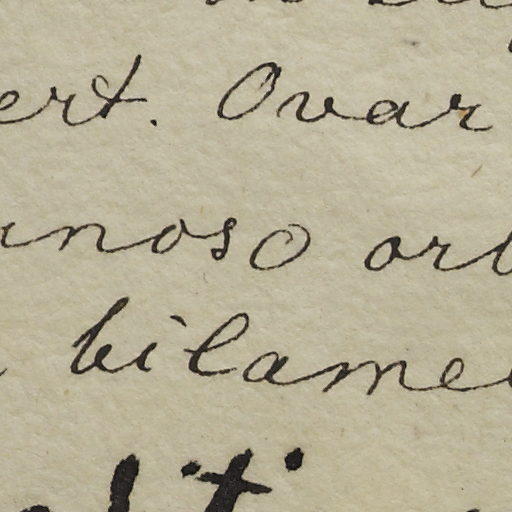 ert. Ovar
anoso or
bilame